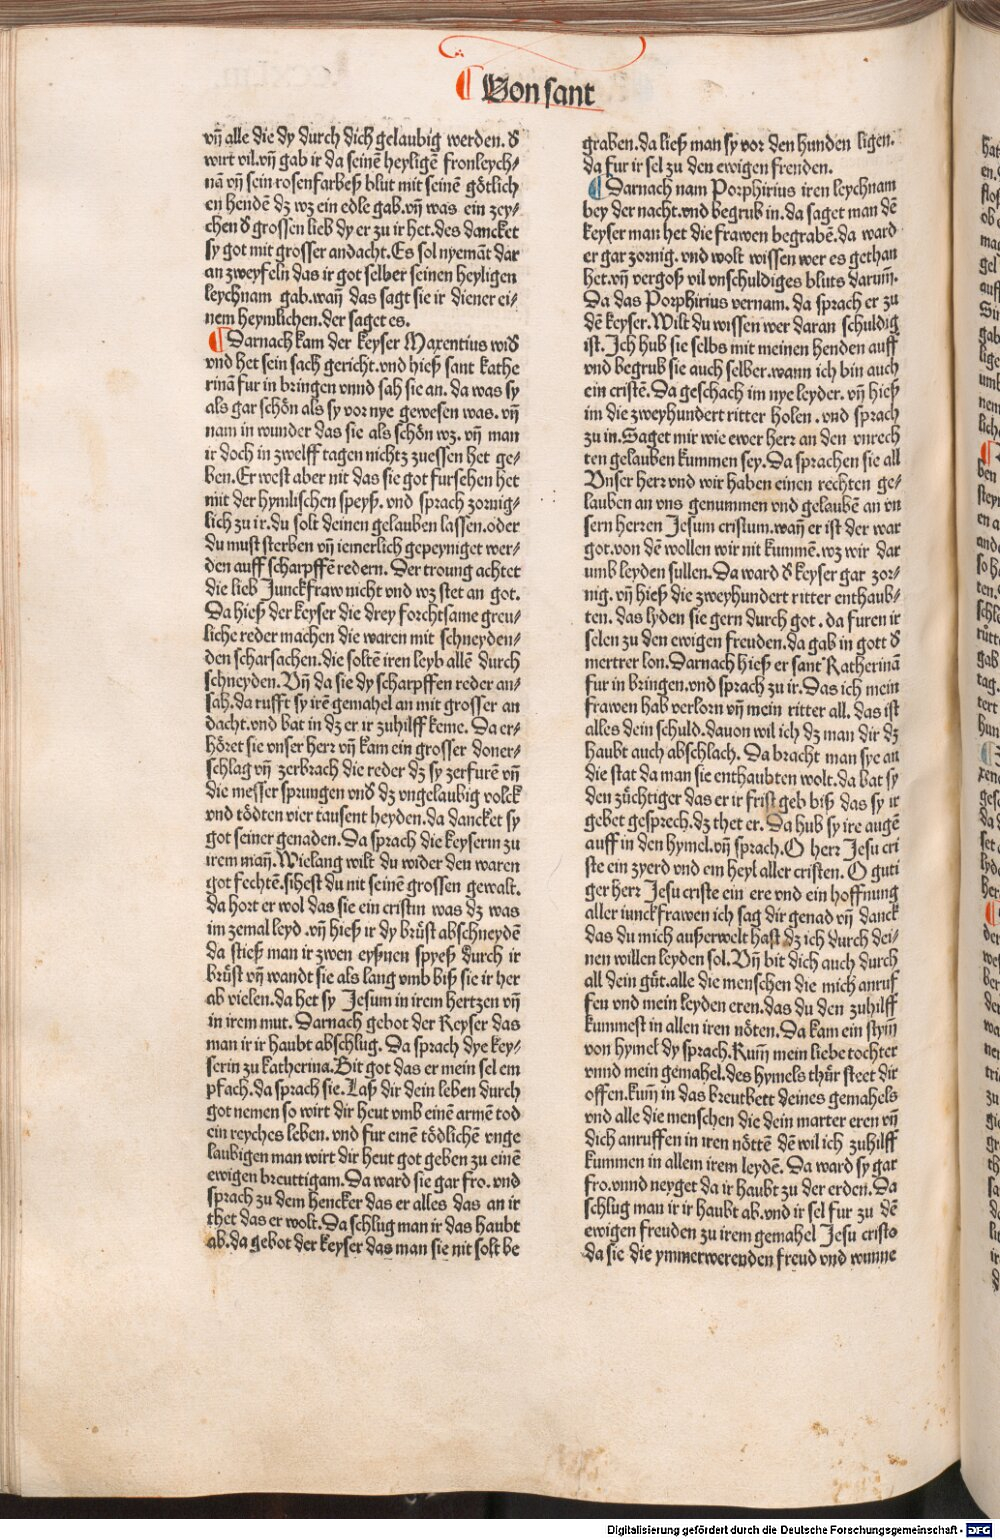 ¶ Von sant
vn̄ alle die dy durch dich gelaubig werden. d̕
wirt vil. vn̄ gab ir da seinē heyligē fronleych⸗
nā vn̄ sein rosenfarbeß blut mit seinē götlich
en hendē dz wz ein edle gab. vn̄ was ein zey⸗
chen d̕ grossen lieb dy er zu ir het. des dancket
sy got mit grosser andacht. Es sol nyemāt dar
an zweyfeln das ir got selber seinen heyligen
leychnam gab. wañ das sagt sie ir diener ei⸗
nem heymlichen. der saget es.
¶ Darnach kam der keyser Maxentius wid̕
vnd het sein sach gericht. vnd hieß sant kathe
rinā fur in bringen vnnd sah sie an. da was sy
als gar schön als sy vor nye gewesen was. vn̄
nam in wunder das sie als schön wz. vn̄ man
ir doch in zwelff tagen nichtz zuessen het ge⸗
ben. Er west aber nit das sie got fursehen het
mit der hymlischen speyß. vnd sprach zornig⸗
lich zu ir. du solt deinen gelauben lassen. oder
du must sterben vn̄ iemerlich gepeyniget wer⸗
den auff scharpffē redern. Der troung achtet
die lieb Junckfraw nicht vnd wz stet an got.
Da hieß der keyser die drey forchtsame greu⸗
liche reder machen die waren mit schneyden⸗
den scharsachen. die soltē iren leyb allē durch
schneyden. Vn̄ da sie dy scharpffen reder an⸗
sah. da rufft sy irē gemahel an mit grosser an
dacht. vnd bat in dz er ir zuhilff keme. Da er⸗
höret sie vnser herr vn̄ kam ein grosser doner⸗
schlag vn̄ zerbrach die reder dz sy zerfurē vn̄
die messer sprungen vnd̕ dz vngelaubig volck
vnd tödten vier tausent heyden. da dancket sy
got seiner genaden. Da sprach die keyserin zu
irem mañ. Wielang wilt du wider den waren
got fechtē. sihest du nit seinē grossen gewalt.
da hort er wol das sie ein cristin was dz was
im zemal leyd. vn̄ hieß ir dy brüst abschneydē
da stieß man ir zwen eyßnen spyeß durch ir
brüst vn̄ wandt sie als lang vmb biß sie ir her
ab vielen. da het sy Jesum in irem hertzen vn̄
in irem mut. Darnach gebot der Keyser das
man ir ir haubt abschlug. Da sprach dye key⸗
serin zu katherina. Bit got das er mein sel em
pfach. da sprach sie. Laß dir dein leben durch
got nemen so wirt dir heut vmb einē armē tod
ein reyches leben. vnd fur einē tödlichē vnge
laubigen man wirt dir heut got geben zu einē
ewigen breuttigam. Da ward sie gar fro. vnd
sprach zu dem hencker das er alles das an ir
thet das er wolt. Da schlug man ir das haubt
ab. da gebot der keyser das man sie nit solt be
graben. da ließ man sy vor den hunden ligen.
da fur ir sel zu den ewigen freuden.
¶ Darnach nam Porphirius iren leychnam
bey der nacht. vnd begrub in. da saget man dē
keyser man het die frawen begrabē. da ward
er gar zornig. vnd wolt wissen wer es gethan
het. vn̄ vergoß vil vnschuldiges bluts darum̄.
Da das Porphirius vernam. da sprach er zu
dē keyser. Wilt du wissen wer daran schuldig
ist. Ich hub sie selbs mit meinen henden auff
vnd begrub sie auch selber. wann ich bin auch
ein cristē. Da geschach im nye leyder. vn̄ hieß
im die zweyhundert ritter holen. vnd sprach
zu in. Saget mir wie ewer herr an den vnrech
ten gelauben kummen sey. Da sprachen sie all
Vnser herr vnd wir haben einen rechten ge⸗
lauben an vns genummen vnd gelaubē an vn
sern herren Jesum cristum. wañ er ist der war
got. von dē wollen wir nit kummē. wz wir dar
umb leyden sullen. Da ward d̕ keyser gar zor⸗
nig. vn̄ hieß die zweyhundert ritter enthaub⸗
ten. das lyden sie gern durch got. da furen ir
selen zu den ewigen freuden. da gab in gott d̕
mertrer lon. Darnach hieß er sant Katherinā
fur in bringen. vnd sprach zu ir. Das ich mein
frawen hab verlorn vn̄ mein ritter all. das ist
alles dein schuld. dauon wil ich dz man dir dz
haubt auch abschlach. Da bracht man sye an
die stat da man sie enthaubten wolt. da bat sy
den züchtiger das er ir frist geb biß das sy ir
gebet gesprech. dz thet er. Da hub sy ire augē
auff in den hymel. vn̄ sprach. O herr Jesu cri
ste ein zyerd vnd ein heyl aller cristen. O guti
ger herr Jesu criste ein ere vnd ein hoffnung
aller iunckfrawen ich sag dir genad vn̄ danck
das du mich außerwelt hast dz ich durch dei⸗
nen willen leyden sol. Vn̄ bit dich auch durch
all dein güt. alle die menschen die mich anruf
fen vnd mein leyden eren. das du den zuhilff
kummest in allen iren nöten. Da kam ein stym̄
von hymel dy sprach. Kum̄ mein liebe tochter
vnnd mein gemahel. des hymels thür steet dir
offen. kum̄ in das breutbett deines gemahels
vnd alle die menschen die dein marter eren vn̄
dich anruffen in iren nöttē dē wil ich zuhilff
kummen in allem irem leydē. Da ward sy gar
fro. vnnd neyget da ir haubt zu der erden. Da
schlug man ir ir haubt ab. vnd ir sel fur zu dē
ewigen freuden zu irem gemahel Jesu cristo
da sie die ymmerwerenden freud vnd wunne
Digitalisierung gefördert durch die Deutsche Forschungsgemeinschaft - DFG